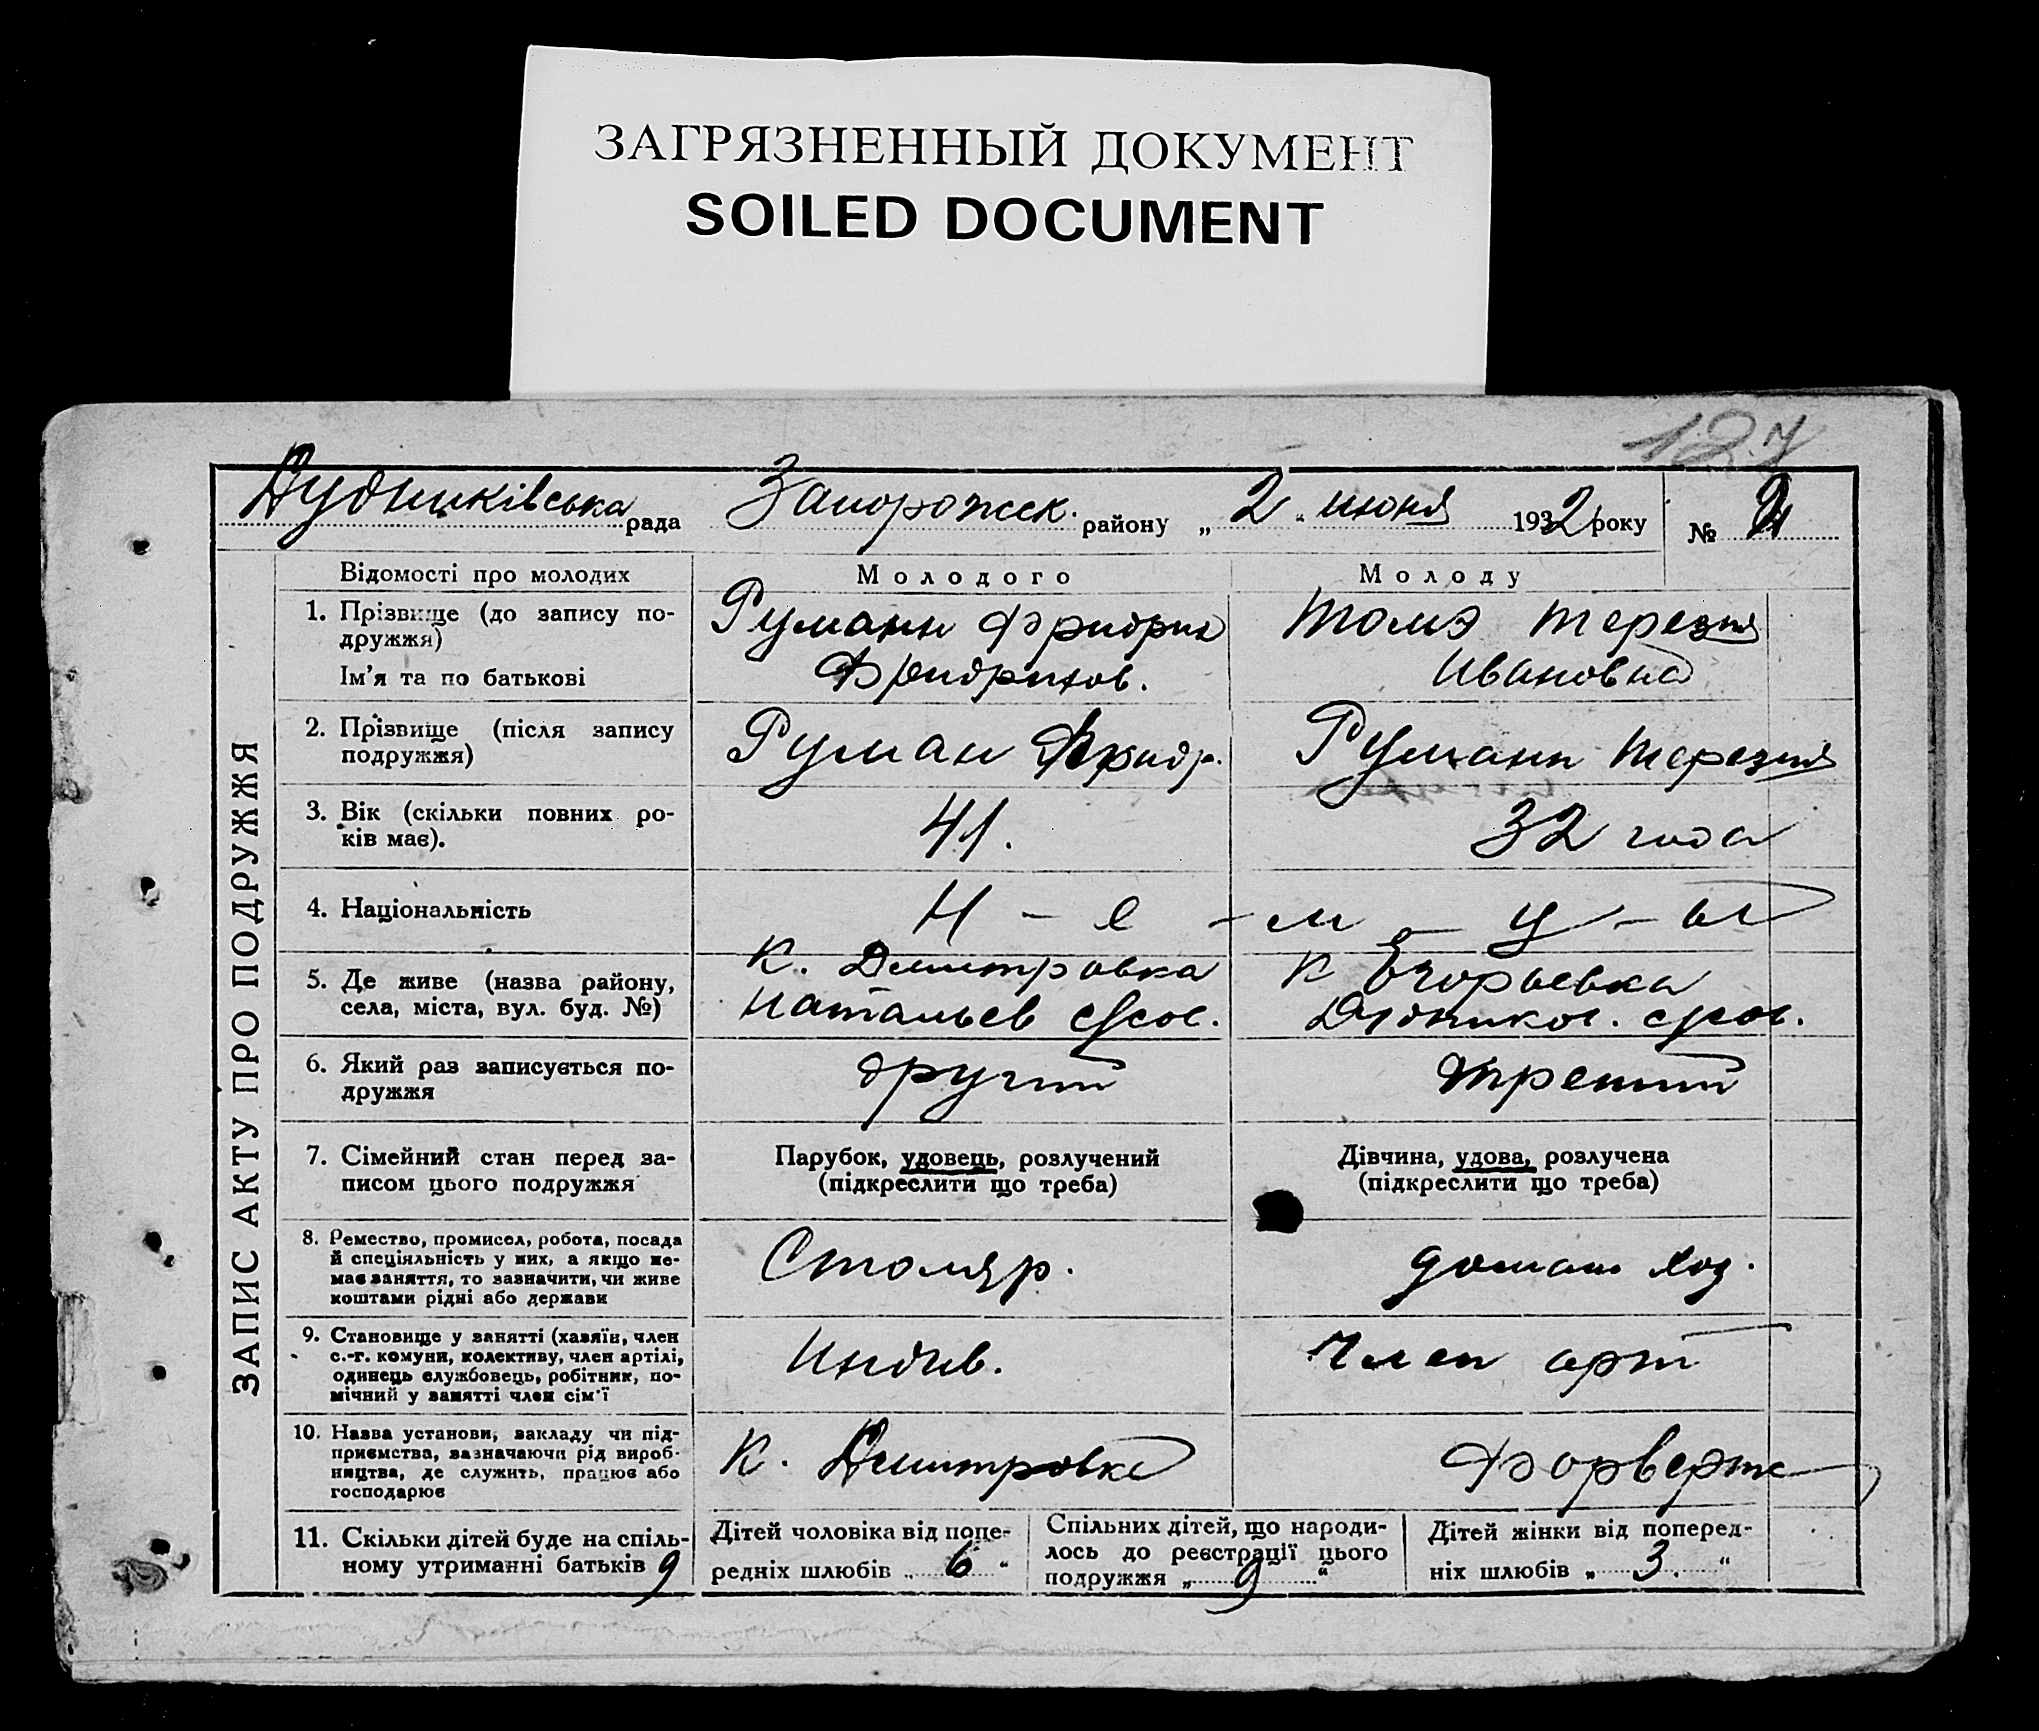 ЗАГРЯЗНЕННЫЙ ДОКУМЕНТ
SOILED DOCUMENT
127
Дудниківська рада Запорожск. району „ 2 „ июня 1932 року № 2
ЗАПИС АКТУ ПРО ПОДРУЖЖЯ
Відомості про молодих Молодого Молоду
1. Прізвище (до запису по-
дружжя)
Ім'я та по батькові
Руманн Фридрих
Фридрихов.
Томэ Терезия
Ивановна
2. Прізвище (після запису
подружжя)
Руман Фридр.
Руманн Терезия
3. Вік (скільки повних ро-
ків має).
41.
32 года
4. Національність
Н - е - м - ц - ы
5. Де живе (назва району,
села, міста, вул. буд. №)
к. Димитровка
Натальев с/сов.
к Егорьевка
Дудников. с/сов.
6. Який раз записується по-
дружжя
другий
третий
7. Сімейний стан перед за-
писом цього подружжя
Парубок, удовець, розлучений
(підкреслити що треба)
Дівчина, удова, розлучена
(підкреслити що треба)
8. Ремество, промисел, робота, посада
й спеціяльність у них, а якщо не-
має заняття, то зазначити, чи живе
коштами рідні або держави
Столяр.
домаш хоз.
9. Становище у занятті (хазяїн, член
с.-г. комуни, колективу, член артілі,
одинець службовець, робітник, по-
мічний у занятті член сім'ї
Индив.
Член арт
10. Назва установи, закладу чи під-
приємства, зазначаючи рід вироб-
ництва, де служить, працює або
господарює
К. Димитровке
Форвертс
11. Скільки дітей буде на спіль-
ному утриманні батьків 9
Дітей чоловіка від попе-
редніх шлюбів „ 6 "
Спільних дітей, що народи-
лось до реєстрації цього
подружжя „ 9 "
Дітей жінки від поперед-
ніх шлюбів „ 3. "